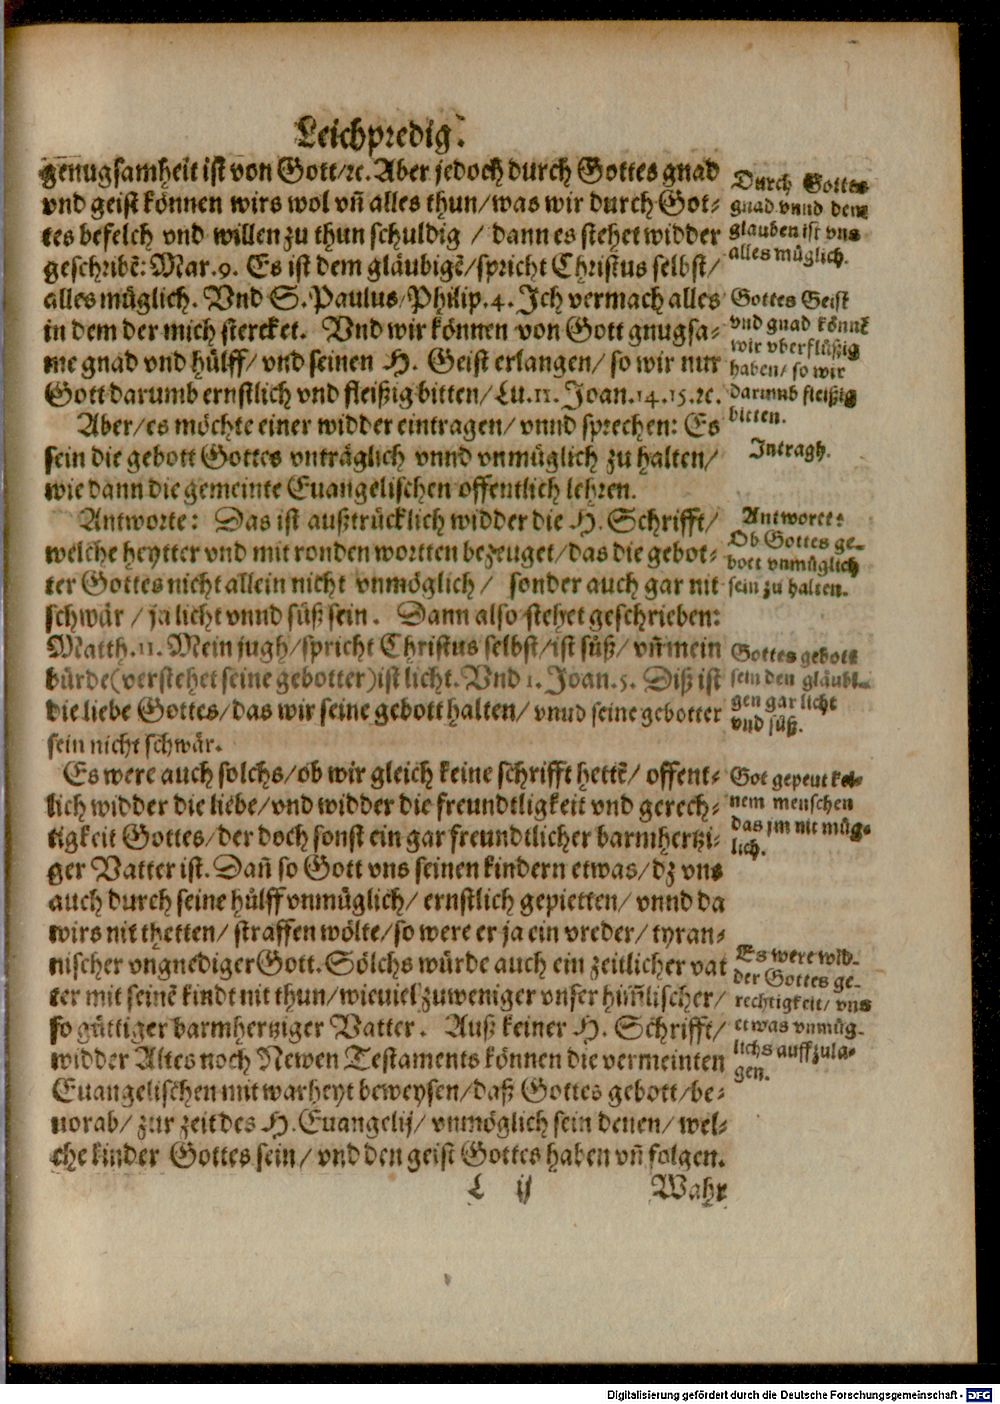 Leichpredig.
genugsamheit ist von Gott/ꝛc. Aber jedoch durch Gottes gnad
vnd geist können wirs wol vñ alles thun/was wir durch Got-
tes befelch vnd willen zu thun schuldig / dann es stehet widder
geschribẽ: Mar.9. Es ist dem gläubigẽ/spricht Christus selbst/
alles müglich. Vnd S. Paulus/Philip.4. Ich vermach alles
in dem der mich stercket. Vnd wir können von Gott gnugsa-
me gnad vnd hülff/ vnd seinen H. Geist erlangen/ so wir nur
Gott darumb ernstlich vnd fleißig bitten/ Lu.11. Joan.14.15.ꝛc.
Aber/es möchte einer widder eintragen/ vnnd sprechen: Es
sein die gebott Gottes vnträglich vnnd vnmüglich zu halten/
wie dann die gemeinte Euangelischen offentlich lehren.
Antworte: Das ist außtrücklich widder die H. Schrifft/
welche heytter vnd mit ronden wortten bezeuget/das die gebot-
ter Gottes nicht allein nicht vnmöglich/ sonder auch gar nit
schwär / ja licht vnnd süß sein. Dann also stehet geschrieben:
Matth.11. Mein jugh/spricht Christus selbst/ist süß/ vñ mein
bürde(verstehet seine gebotter)ist licht. Vnd 1. Joan.5. Diß ist
die liebe Gottes/das wir seine gebott halten/ vnnd seine gebotter
sein nicht schwär.
Es were auch solchs/ob wir gleich keine schrifft hettẽ/ offent-
lich widder die liebe/vnd widder die freundtligkeit vnd gerech-
tigkeit Gottes/der doch sonst ein gar freundtlicher barmhertzi-
ger Vatter ist. Dañ so Gott vns seinen kindern etwas/dz vns
auch durch seine hülff vnmüglich/ ernstlich gepietten/ vnnd da
wirs nit thetten/ straffen wölte/so were er ja ein vreder/ tyran-
nischer vngnediger Gott. Sölchs würde auch ein zeitlicher vat
ter mit seinẽ kindt nit thun/wieuiel zuweniger vnser him̃lischer/
so güttiger barmhertziger Vatter. Auß keiner H. Schrifft/
widder Altes noch Newen Testaments können die vermeinten
Euangelischen mit warheyt beweysen/daß Gottes gebott/be-
uorab/ zur zeit des H. Euangelij/ vnmöglich sein denen/ wel-
che kinder Gottes sein/ vnd den geist Gottes haben vñ folgen.
L ij Wahr
Durch Gottes
gnad vnnd dem
glauben ist vns
alles müglich.
Gottes Geist
vnd gnad könnẽ
wir vberflüßig
haben/ so wir
darumb fleißig
bitten.
Intragh.
Antworte:
Ob Gottes ge-
bott vnmüglich
sein zu halten.
Gottes gebott
sein den gläubi-
gen gar licht
vnd süß.
Got gepeut kei-
nem menschen
das jm nit müg-
lich.
Es were wid-
der Gottes ge-
rechtigkeit/ vns
etwas vnmüg-
lichs auffzula-
gen.
Digitalisierung gefördert durch die Deutsche Forschungsgemeinschaft - DFG